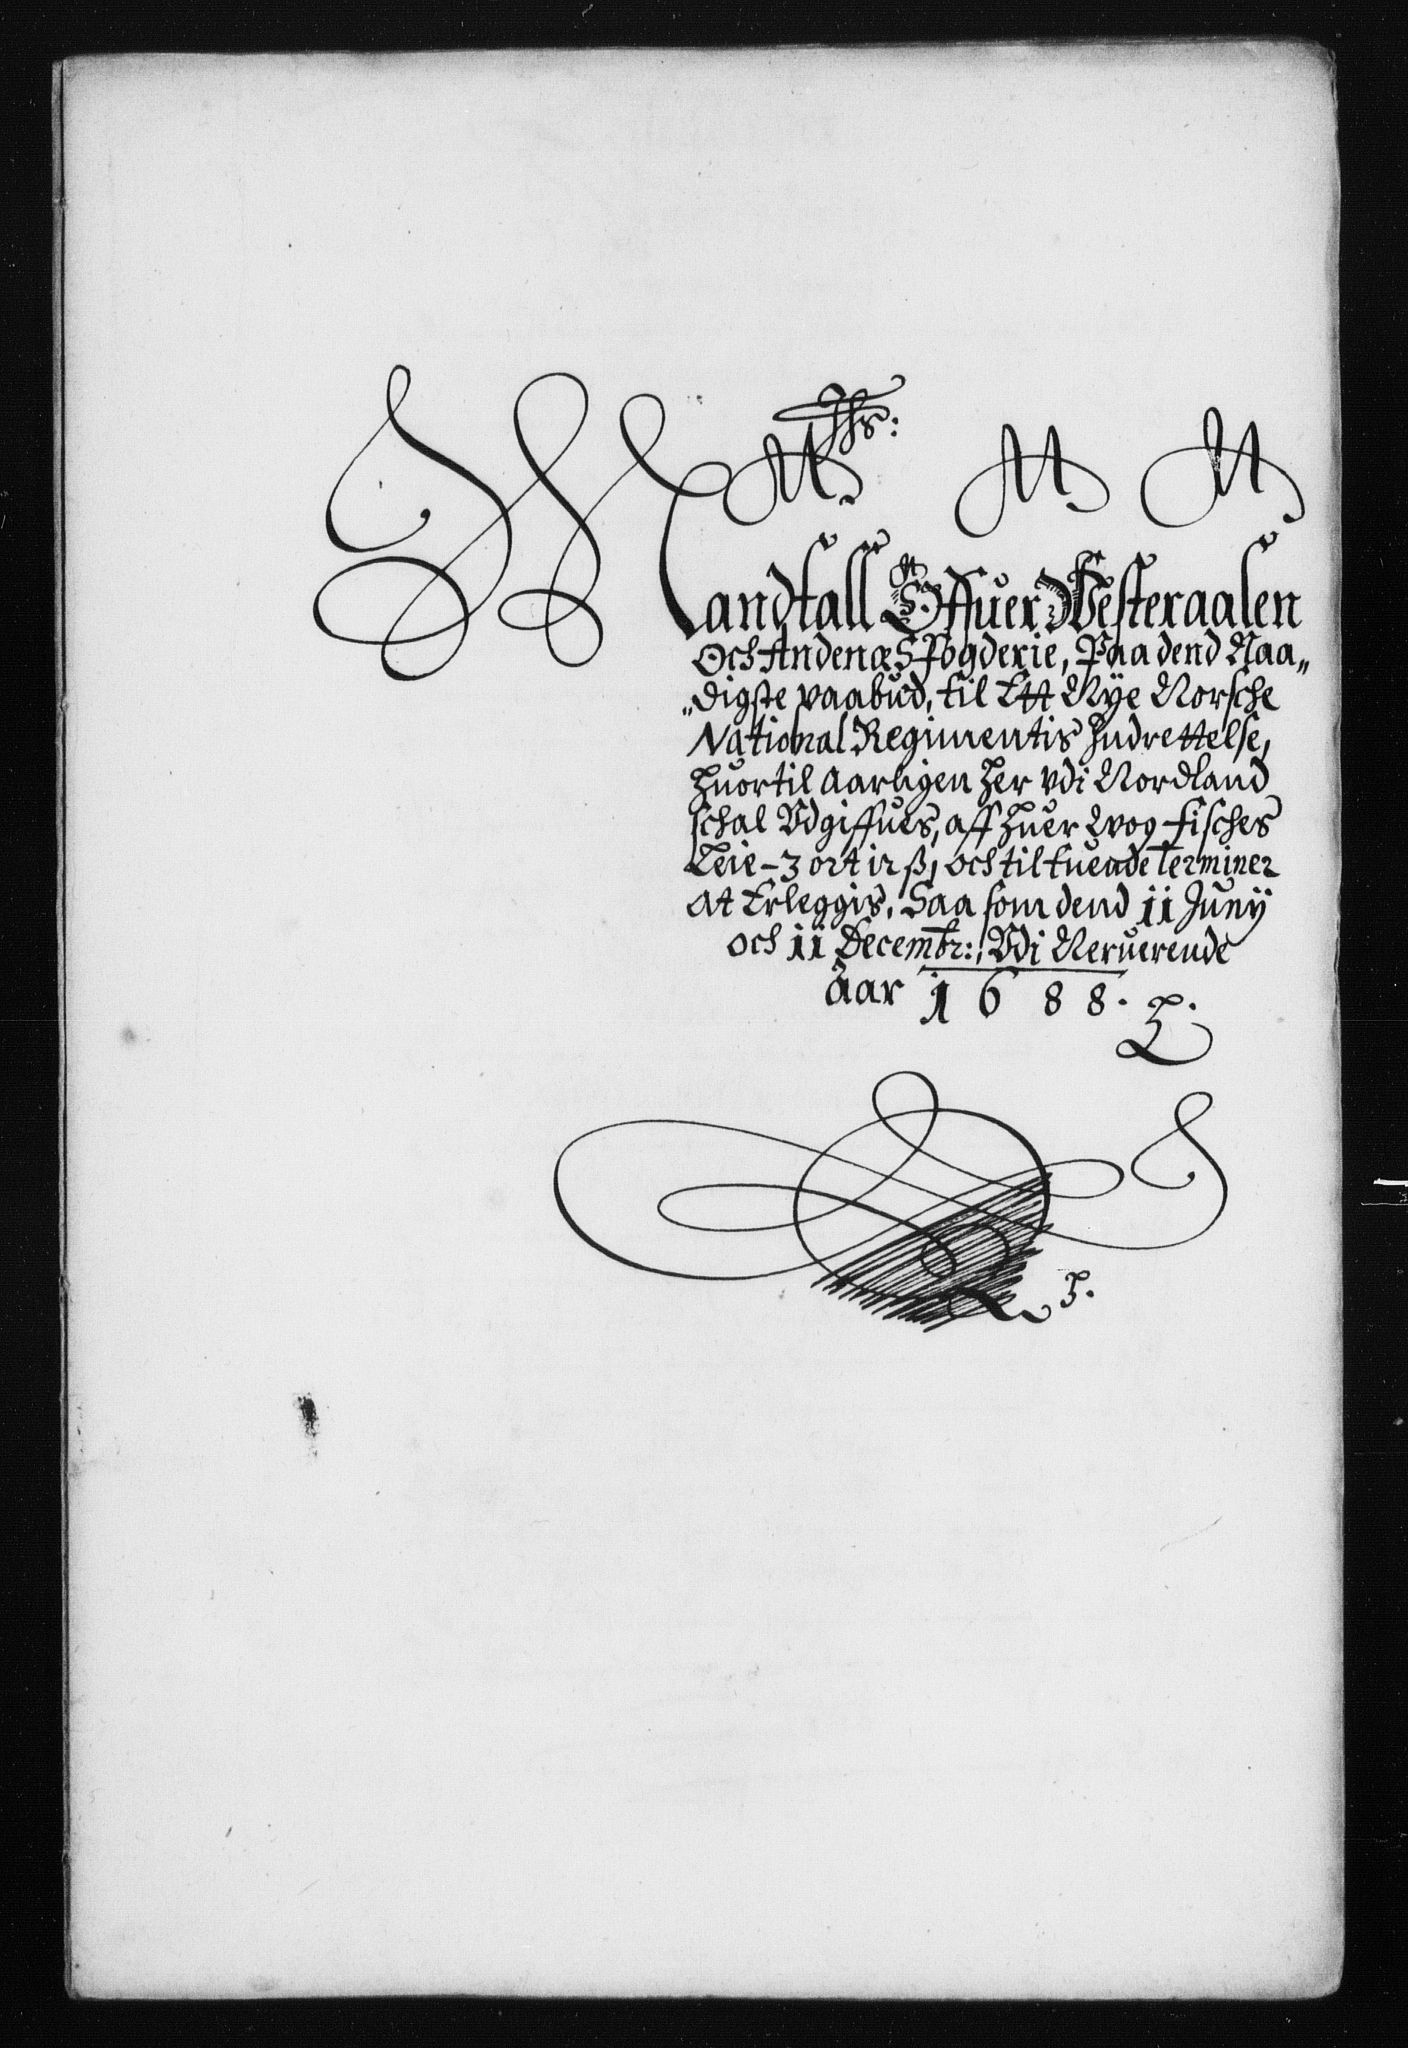 Jhs:
Mandtall Offuer Westeraalen
Och AndenæS Fogderie, Paa dend Naa„
„digste paabud, til Ett Nye Norsche
National Regimentis Indrettelse,
Huortil Aarligen Her udi Nordland
schal Udgiffues, aff Huer Wog fisches
Leie - 3 ort ir ß, och til tuende Terminer
at Erleggis, Saa som dend 11 Juny
och 11 Decembr:, Udi Neruerende
Aar 1688.